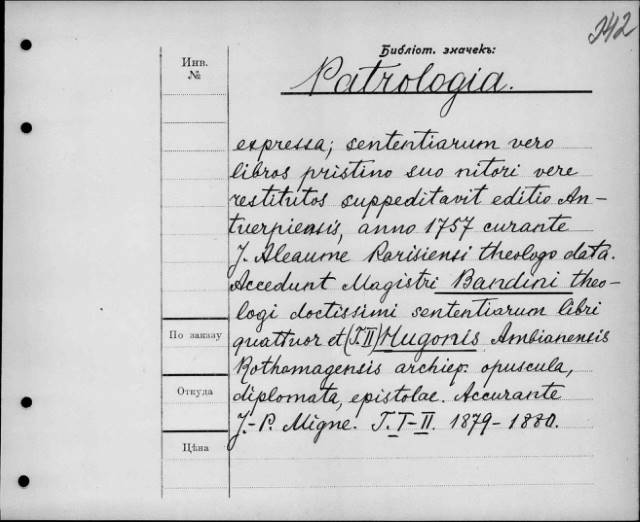 242
Библіот. значекъ:
Инв.
№
Patrologia.
expressa; sententiarum vero
libros pristino suo nitori vere
restitutos suppeditavit editio An-
tuerpiensis, anno 1757 curante
J. Aleaume Parisiensi theologo data.
Accedunt Magistri Bandini theo-
logi doctissimi sententiarum libri
quattuor et (T.II) Hugonis Ambianensis
По заказу
Rothomagensis archiep. opuscula,
Откуда
diplomata, epistolae. Accurante
J.-P. Migne. T. I-II. 1879-1880.
Цѣна